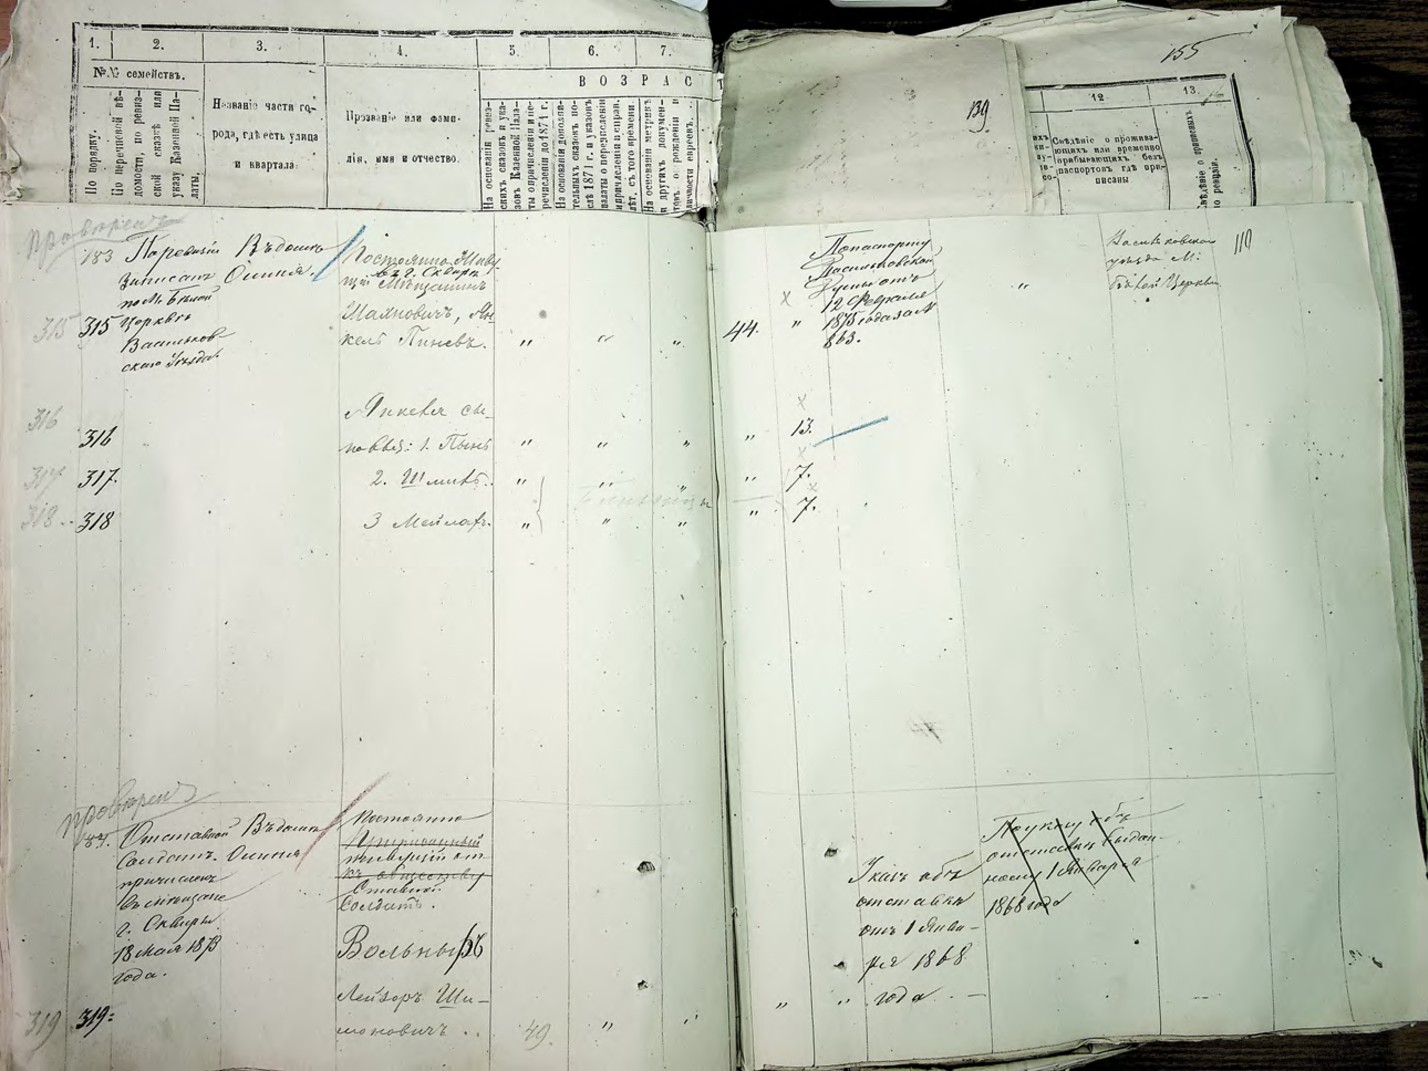 1. 2. 3. 4. 5. 6. 7.
№№ семействъ.
По порядку.
По перечневой вѣ-
домости, по ревиз-
ской сказкѣ или
указу Казенной Па-
латы.
Названіе части го-
рода, гдѣ есть улица
и квартала
Прозваніе или фами-
лія, имя и отчество.
ВОЗРАСТ
На основаніи ревиз-
скихъ сказокъ и ука-
зовъ Казенной Пала-
ты о причисленіи и пе-
речисленіи до 1871 г.
На основаніи дополни-
тельныхъ сказокъ по-
слѣ 1871 г. и указовъ
палаты о перечисленіи
и причисленіи и справ.
лѣт. съ того времени
На основаніи метрикъ
и другихъ докумен-
товъ о рожденіи и
личности евреевъ.
139
155
12 13.
Свѣдѣніе о прожива-
ющихъ или временно
прибывающихъ безъ
паспортовъ гдѣ при-
писаны
Свѣдѣніе о
по ревизіи.
провѣренъ
183
записанъ
по М. Бѣлой
Церквѣ
Васильков-
скаго Уѣзда
Вѣдомст
Осипія.
Постоянно Живу-
въ г. Сквирѣ
щій Мѣщанинъ
Шаяновичъ, Ян-
кель Пиневъ.
315 315 " " " 44. "
По паспорту
Васильковской
Думы отъ
12 Февраля
1875 года за №
863.
"
Васильковскаго
уѣзда М:
Бѣлой Церкви
110
Янкеля сы-
новья: 1. Пынь
316 316 " " " " 13.
317 317. 2. Шмиль. " " " " 7.
318 318 3 Мейлахъ. " " " " 7.
провѣренъ
Отставной
Солдатъ.
причисленъ
въ мѣщане
г. Сквиры
18 Мая 1873
года.
Вѣдомст
Осипія
Постоянно
живущій
Солдатъ.
Вольный
Лейзоръ Ши-
моновичъ ..
319 319: 49. " " " "
Указъ объ
отставки
отъ 1 Янва-
ря 1868
года. —
По указу объ
отставки выдан-
ному 1 Января
1868 года